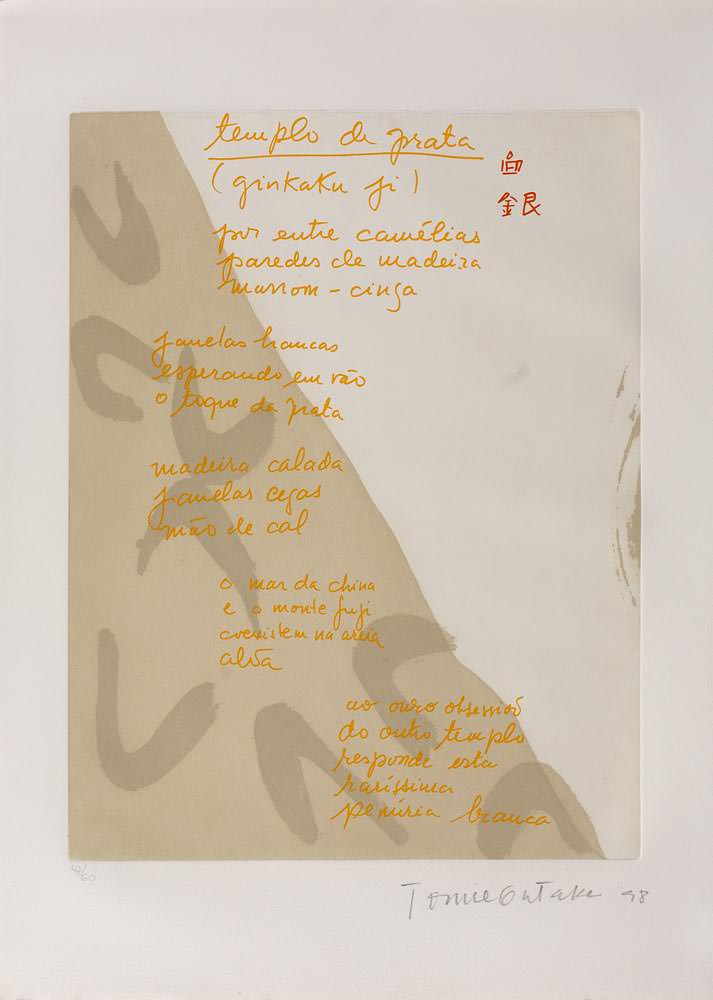 templo de prata
(ginkaku ji)
白
銀
por entre camélias
paredes de madeira
marrom-cinza
janelas brancas
esperando em vão
o toque da prata
madeira calada
janelas cegas
mão de cal
o mar da china
e o monte fuji
coexistem na areia
alva
ao ouro obsessivo
do outro templo
responde esta
raríssima
penúria branca
40/60
Tomie Ohtake 98